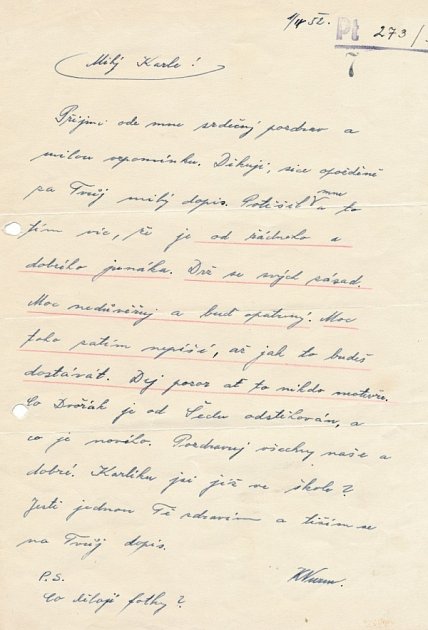 1/4 52.
Pt 273/
7
Milý Karle!
Přijmi ode mne srdečný pozdrav a
milou vzpomínku. Děkuji, sice opožděně
za Tvůj milý dopis. Potěšil mne a to
tím víc, že je od řádného a
dobrého junáka. Drž se svých zásad.
Moc nedůvěřuj a buď opatrný. Moc
toho zatím nepíši, až jak to budeš
dostávat. Dej pozor ať to nikdo neotevře.
Co Dvořák je od Šedu odstěhován, a
co je nového. Pozdravuj všechny naše a
dobré. Karlíku jsi již ve škole?
Ještě jednou Tě zdravím a těším se
na Tvůj dopis.
P.S.
Co dělají fotky?